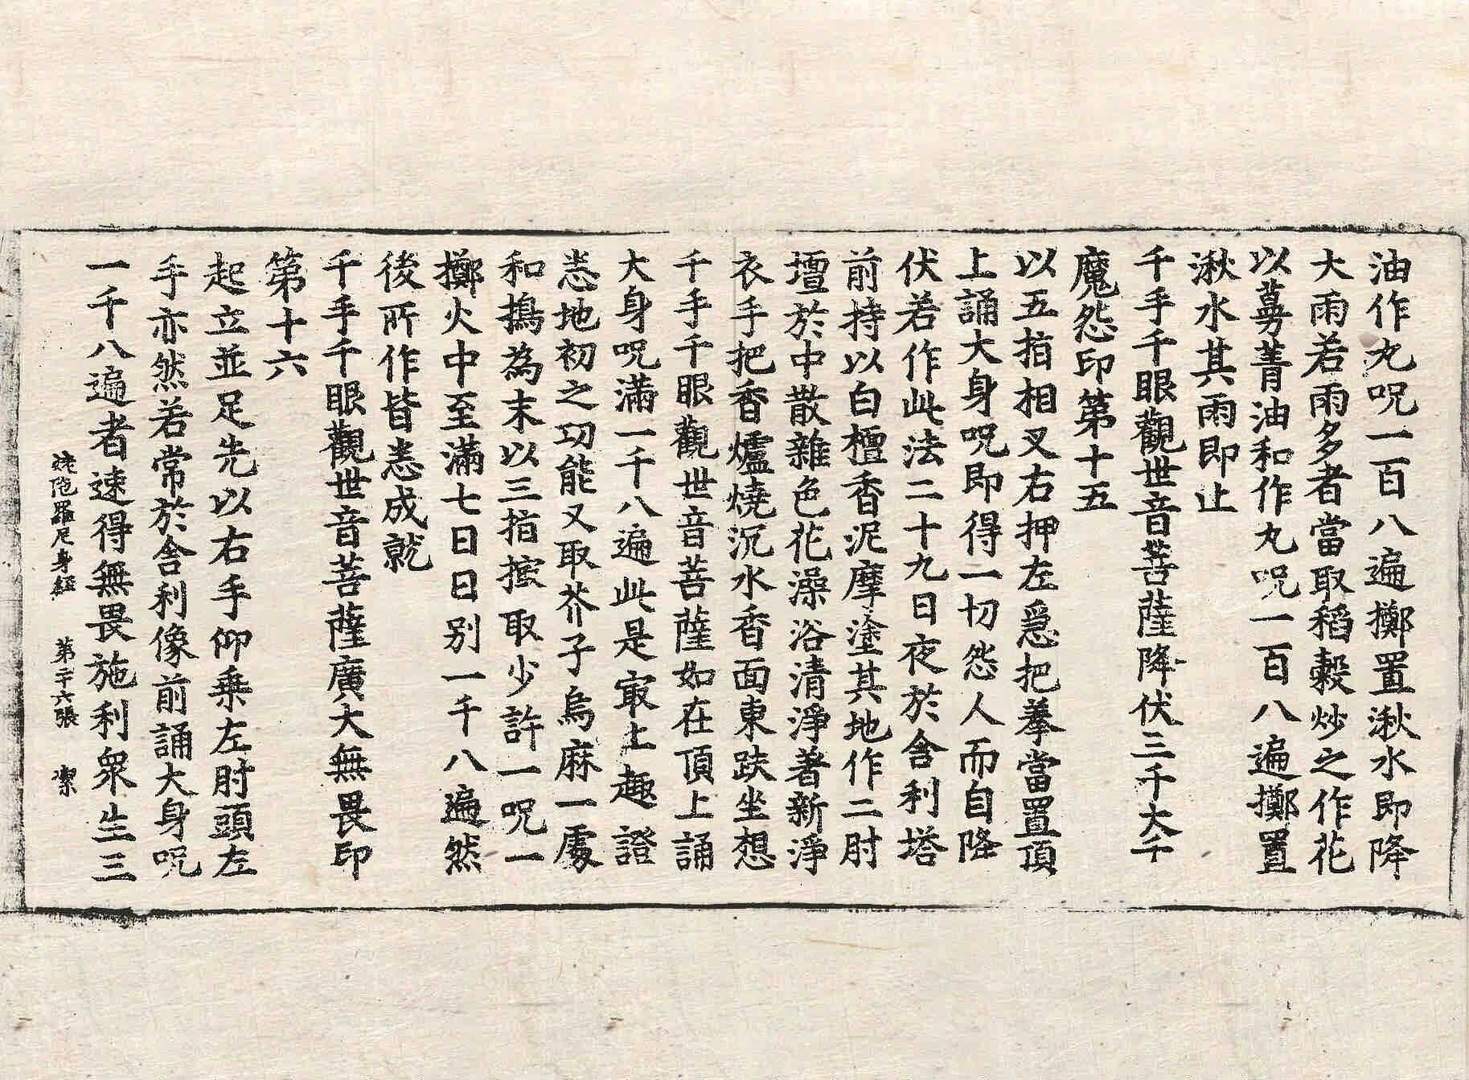 油作丸呪一百八遍擲置湫水即降
大雨若雨多者當取稻穀炒之作花
以蔓菁油和作丸呪一百八遍擲置
湫水其雨即止
千手千眼觀世音菩薩降伏三千大千
魔怨印第十五
以五指相叉右押左急把拳當置頂
上誦大身呪即得一切怨人而自降
伏若作此法二十九日夜於舍利塔
前持以白檀香泥摩塗其地作二肘
壇於中散雜色花澡浴清淨著新淨
衣手把香爐燒沉水香面東趺坐想
千手千眼觀世音菩薩如在頂上誦
大身呪滿一千八遍此是㝡上趣證
悉地初之功能又取芥子烏麻一處
和擣為末以三指撮取少許一呪一
擲火中至滿七日日別一千八遍然
後所作皆悉成就
千手千眼觀世音菩薩廣大無畏印
第十六
起立並足先以右手仰乘左肘頭左
手亦然若常於舍利像前誦大身呪
一千八遍者速得無畏施利衆生三
姥陁羅尼身經 第二十六張